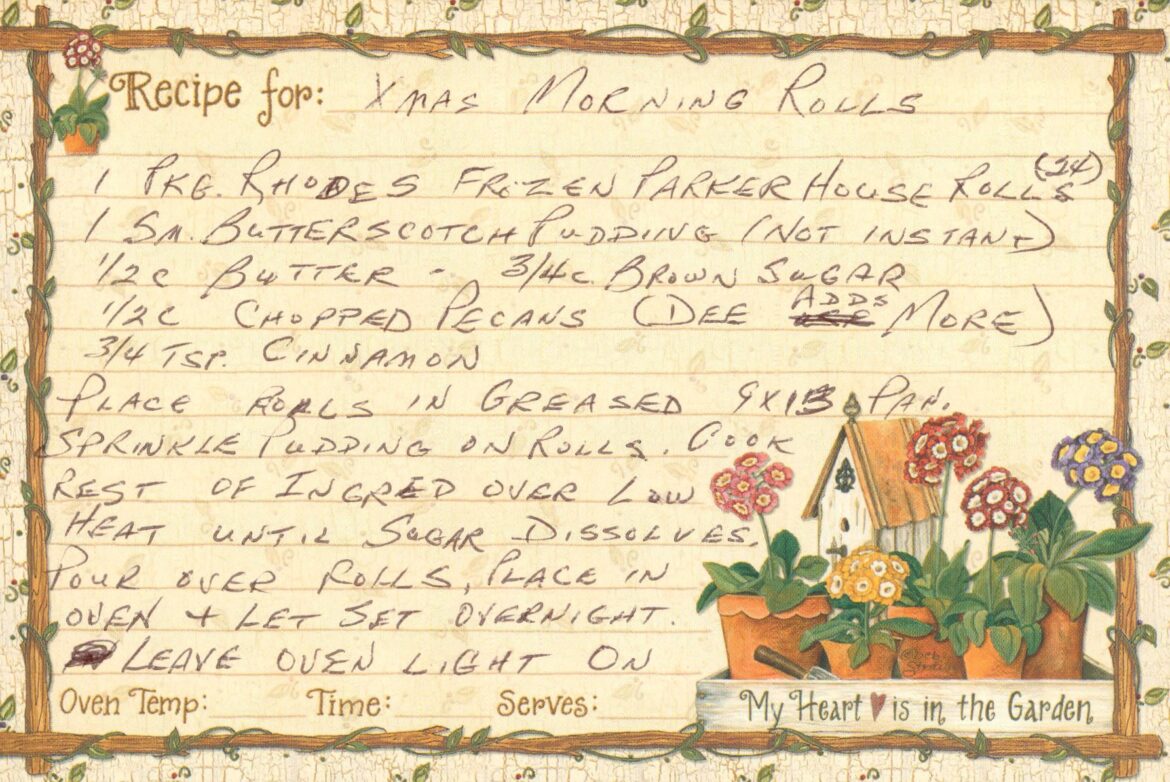 Recipe for: XMAS MORNING ROLLS
1 PKG. RHODES FROZEN PARKER HOUSE ROLLS (24)
1 SM. BUTTERSCOTCH PUDDING (NOT INSTANT)
1/2 C BUTTER - 3/4 C. BROWN SUGAR
1/2 C CHOPPED PECANS (DEE ADDS MORE)
3/4 TSP. CINNAMON
PLACE ROLLS IN GREASED 9X13 PAN.
SPRINKLE PUDDING ON ROLLS. COOK
REST OF INGRED OVER LOW
HEAT UNTIL SUGAR DISSOLVES.
POUR OVER ROLLS, PLACE IN
OVEN + LET SET OVERNIGHT.
LEAVE OVEN LIGHT ON
Oven Temp: Time: Serves:
My Heart is in the Garden